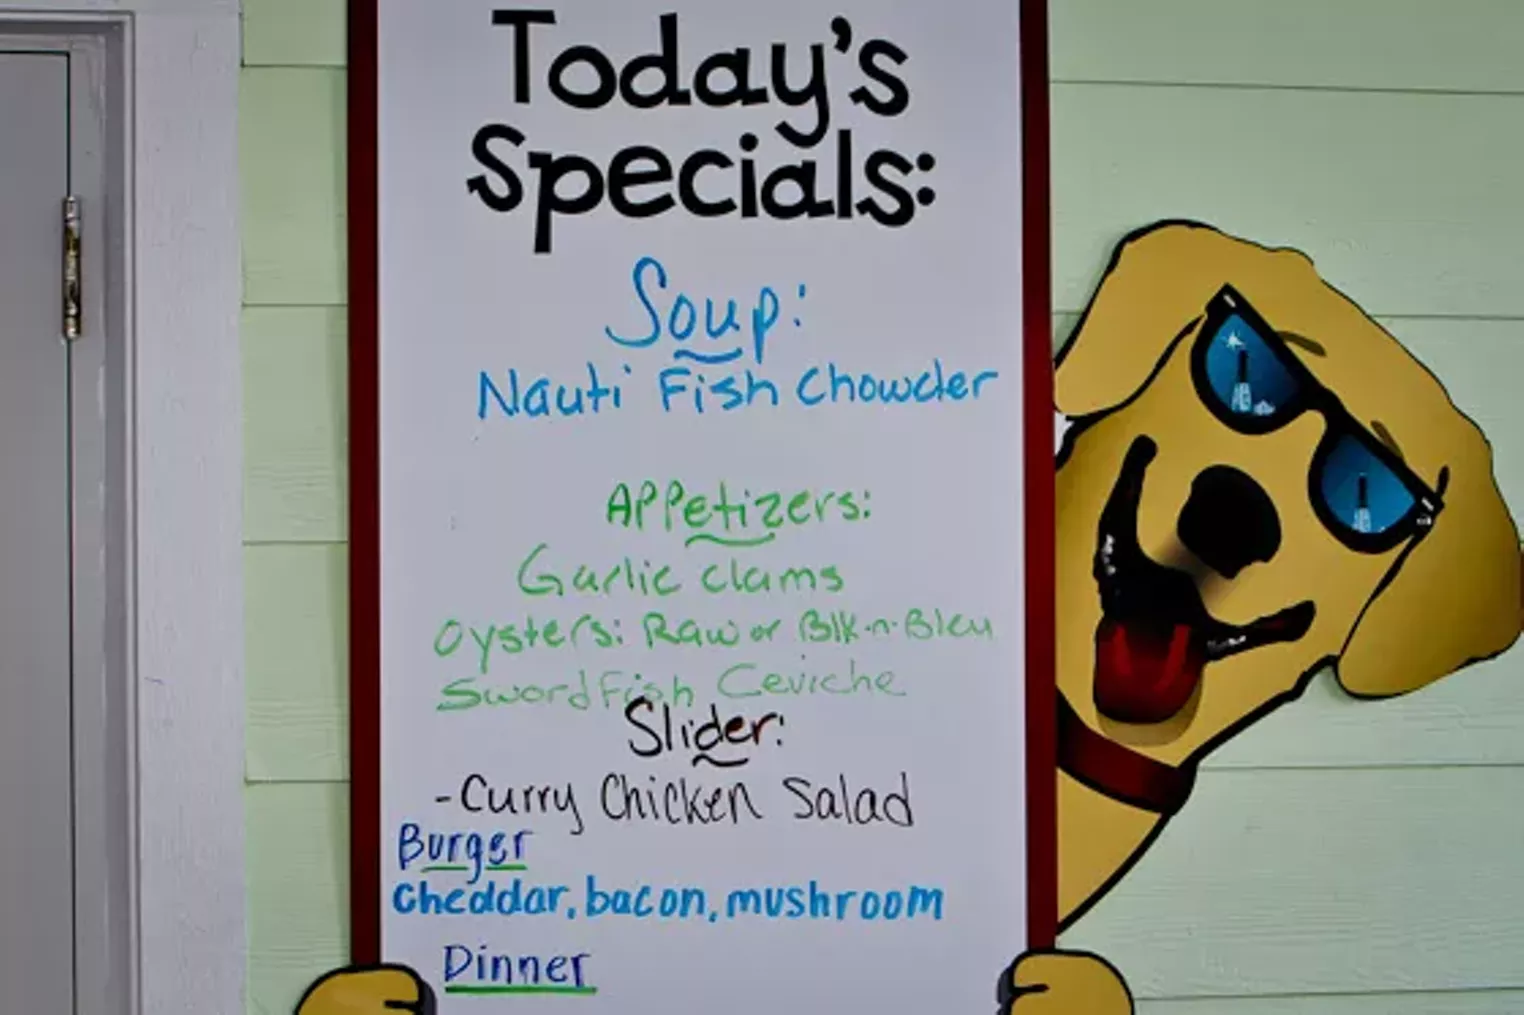 Today's
Specials:
Soup:
Nauti Fish Chowder
APPetizers:
Garlic clams
Oysters: Raw or Blk-n-Bleu
SwordFish Ceviche
Slider:
-Curry Chicken Salad
Burger
Cheddar, bacon, mushroom
Dinner